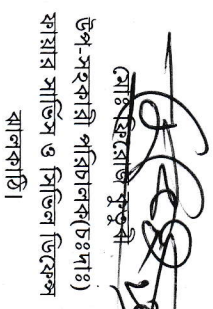 মোঃ ফিরোজ কুতুবী
উপ-সহকারি পরিচালক(চঃদাঃ)
ফায়ার সার্ভিস ও সিভিল ডিফেন্স
ঝালকাঠি।